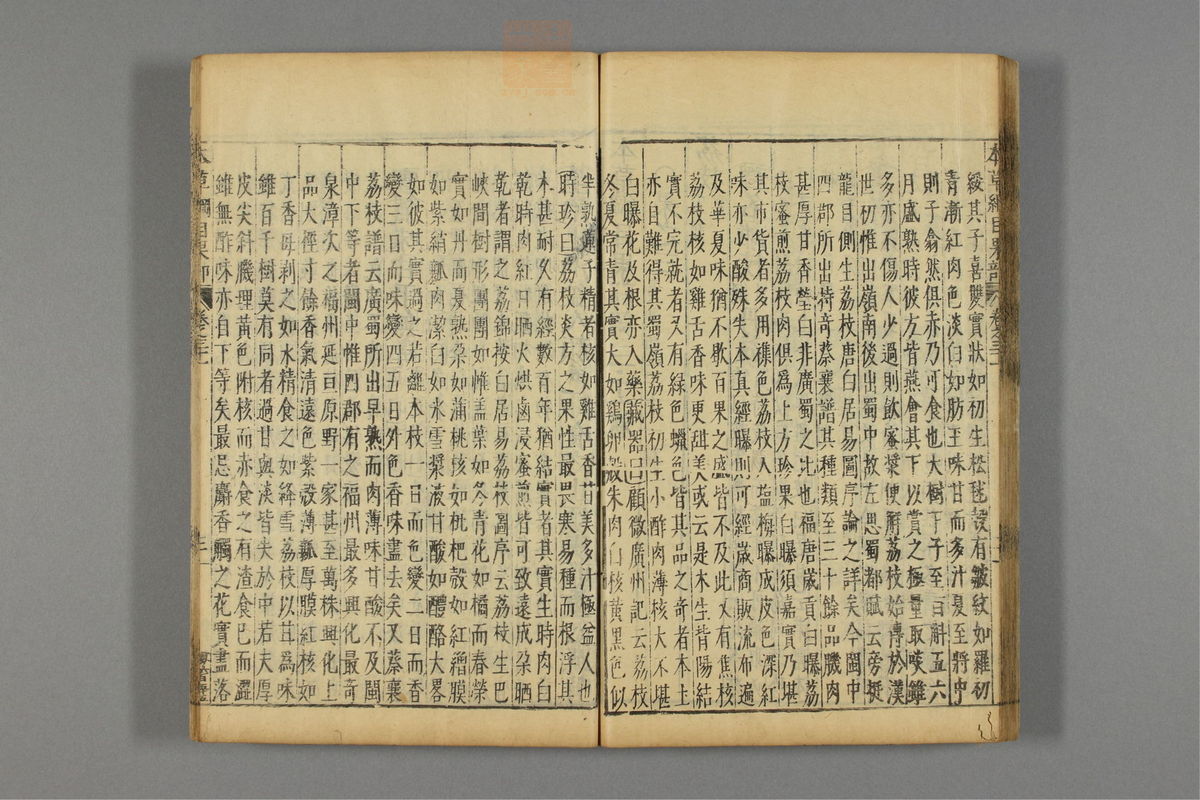 綏其子喜雙實狀如初生松毬殼有皺紋如羅初
青漸紅肉色淡白如肪玉味甘而多汁夏至將中
則子翕然俱赤乃可食也大樹下子至百斛五六
月盛熟時彼方皆燕會其下以賞之極量取啖雖
多亦不傷人少過則飲蜜漿便解荔枝始傳於漢
世初惟出嶺南後出蜀中故左思蜀都賦云旁挺
龍目側生荔枝唐白居易圖序論之詳矣今閩中
四郡所出特奇蔡襄譜其種類至三十餘品肌肉
甚厚甘香瑩白非廣蜀之比也福唐歲貢白曝荔
枝蜜煎荔枝肉俱為上方珍果白曝須嘉實乃堪
其市貨者多用雜色荔枝入鹽梅曝成皮色深紅
味亦少酸殊失本真經曝則可經歲商販流布遍
及華夏味猶不歇百果之盛皆不及此又有焦核
荔枝核如雞舌香味更甜美或云是木生背陽結
實不完就者又有綠色蠟色皆其品之奇者本土
亦自難得其蜀嶺荔枝初生小酢肉薄核大不堪
白曝花及根亦入藥藏器曰顧微廣州記云荔枝
冬夏常青其實大如鷄卵殼朱肉白核黃黑色似
半熟蓮子精者核如雞舌香甘美多汁極益人也
時珍曰荔枝炎方之果性最畏寒易種而根浮其
木甚耐久有經數百年猶結實者其實生時肉白
乾時肉紅日晒火烘鹵浸蜜煎皆可致遠成朵晒
乾者謂之荔錦按白居易荔枝圖序云荔枝生巴
峽間樹形團團如帷蓋葉如冬青花如橘而春榮
實如丹而夏熟朵如蒲桃核如枇杷殼如紅繒膜
如紫綃瓤肉潔白如氷雪漿液甘酸如醴酪大畧
如彼其實過之若離本枝一日而色變二日而香
變三日而味變四五日外色香味盡去矣又蔡襄
荔枝譜云廣蜀所出早熟而肉薄味甘酸不及閩
中下等者閩中惟四郡有之福州最多興化最奇
泉漳次之福州延亘原野一家甚至萬株興化上
品大徑寸餘香氣清遠色紫殼薄瓤厚膜紅核如
丁香母剥之如水精食之如絳雪荔枝以甘為味
雖百千樹莫有同者過甘與淡皆失於中若夫厚
皮尖斜肌理黃色附核而赤食之有渣食已而澀
雖無酢味亦自下等矣最忌麝香觸之花實盡落